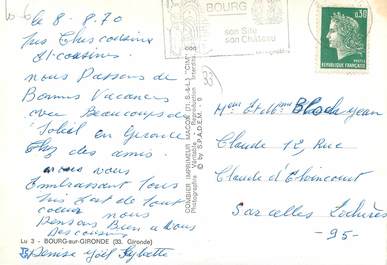 le 8.8.70
très chers cousins
et cousines.
nous Passons de
Bonnes Vacances
avec Beaucoups de
Soleil en Gironde
Chez des amis.
nous vous
Embrassant tous
très fort de tout
coeur nous
Pensons Bien a vous
Des cousins
Denise Joël
Lu 3 - BOURG-sur-GIRONDE (33. Gironde)
COMBIER IMPRIMEUR MACON (71. S.-&-L.) "CIM"
Photographie Véritable - Reproduction Interdite
© by S.P.A.D.E.M.
BOURG
son Site
son Château
0,30
POSTES
REPUBLIQUE FRANÇAISE
33
Mme et Mr Jean
Claude 12, Rue
Claude d'
Sarcelles Lochères
-95-